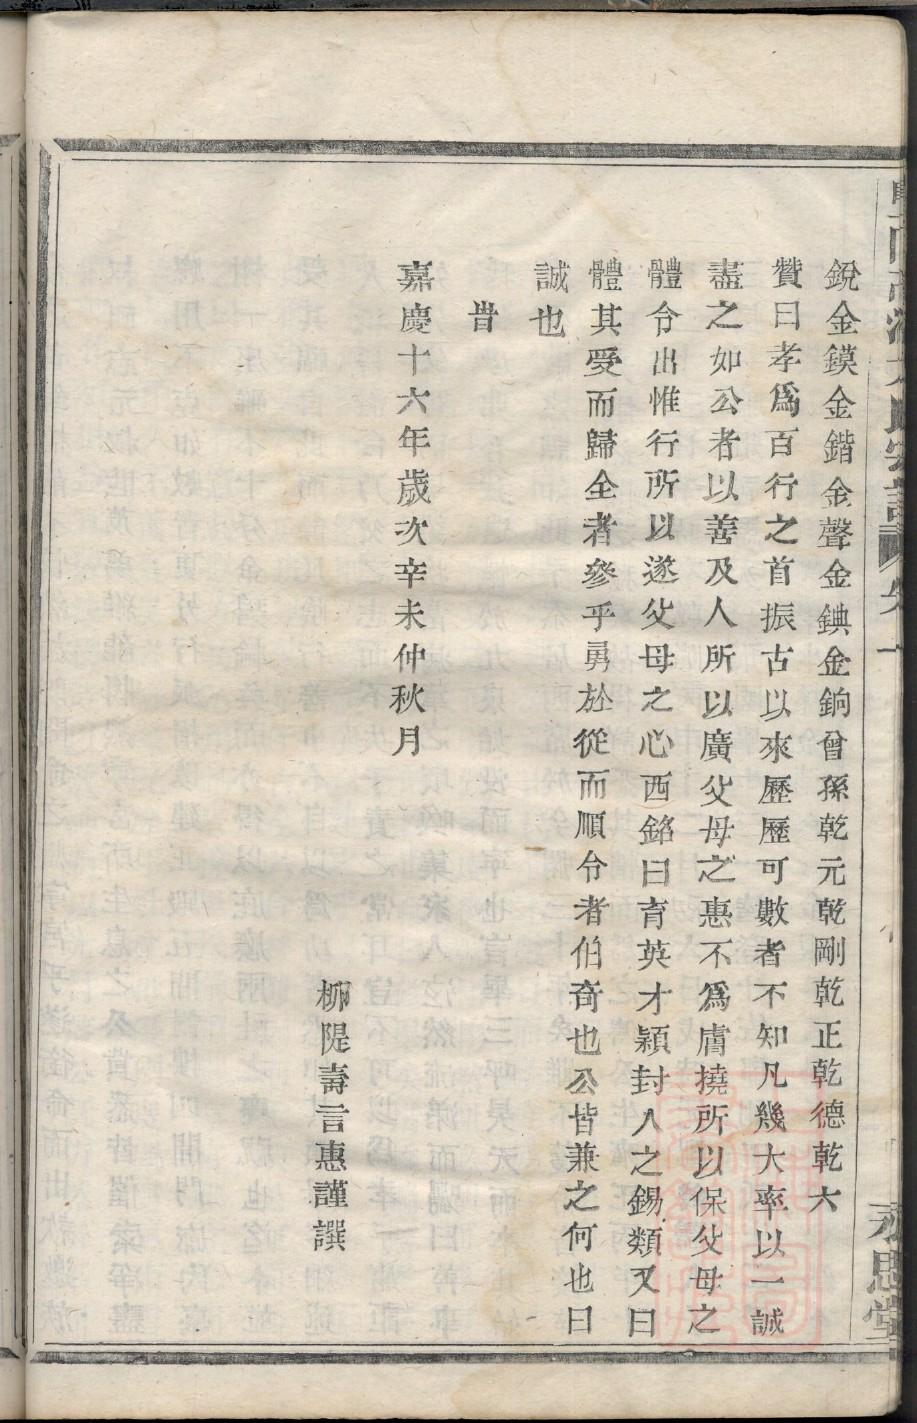 銳金鏌金鍇金聲金錪金銄曾孫乾元乾剛乾正乾德乾六
贊曰孝爲百行之首振古以來歷歷可數者不知凡幾大率以一誠
盡之如公者以善及人所以廣父母之惠不爲膚撓所以保父母之
體令出惟行所以遂父母之心西銘曰育英才潁封人之錫類又曰
體其受而歸全者參乎勇於從而順令者伯奇也公皆兼之何也曰
誠也
旹
嘉慶十六年歲次辛未仲秋月
柳隄壽言惠謹譔
永思堂